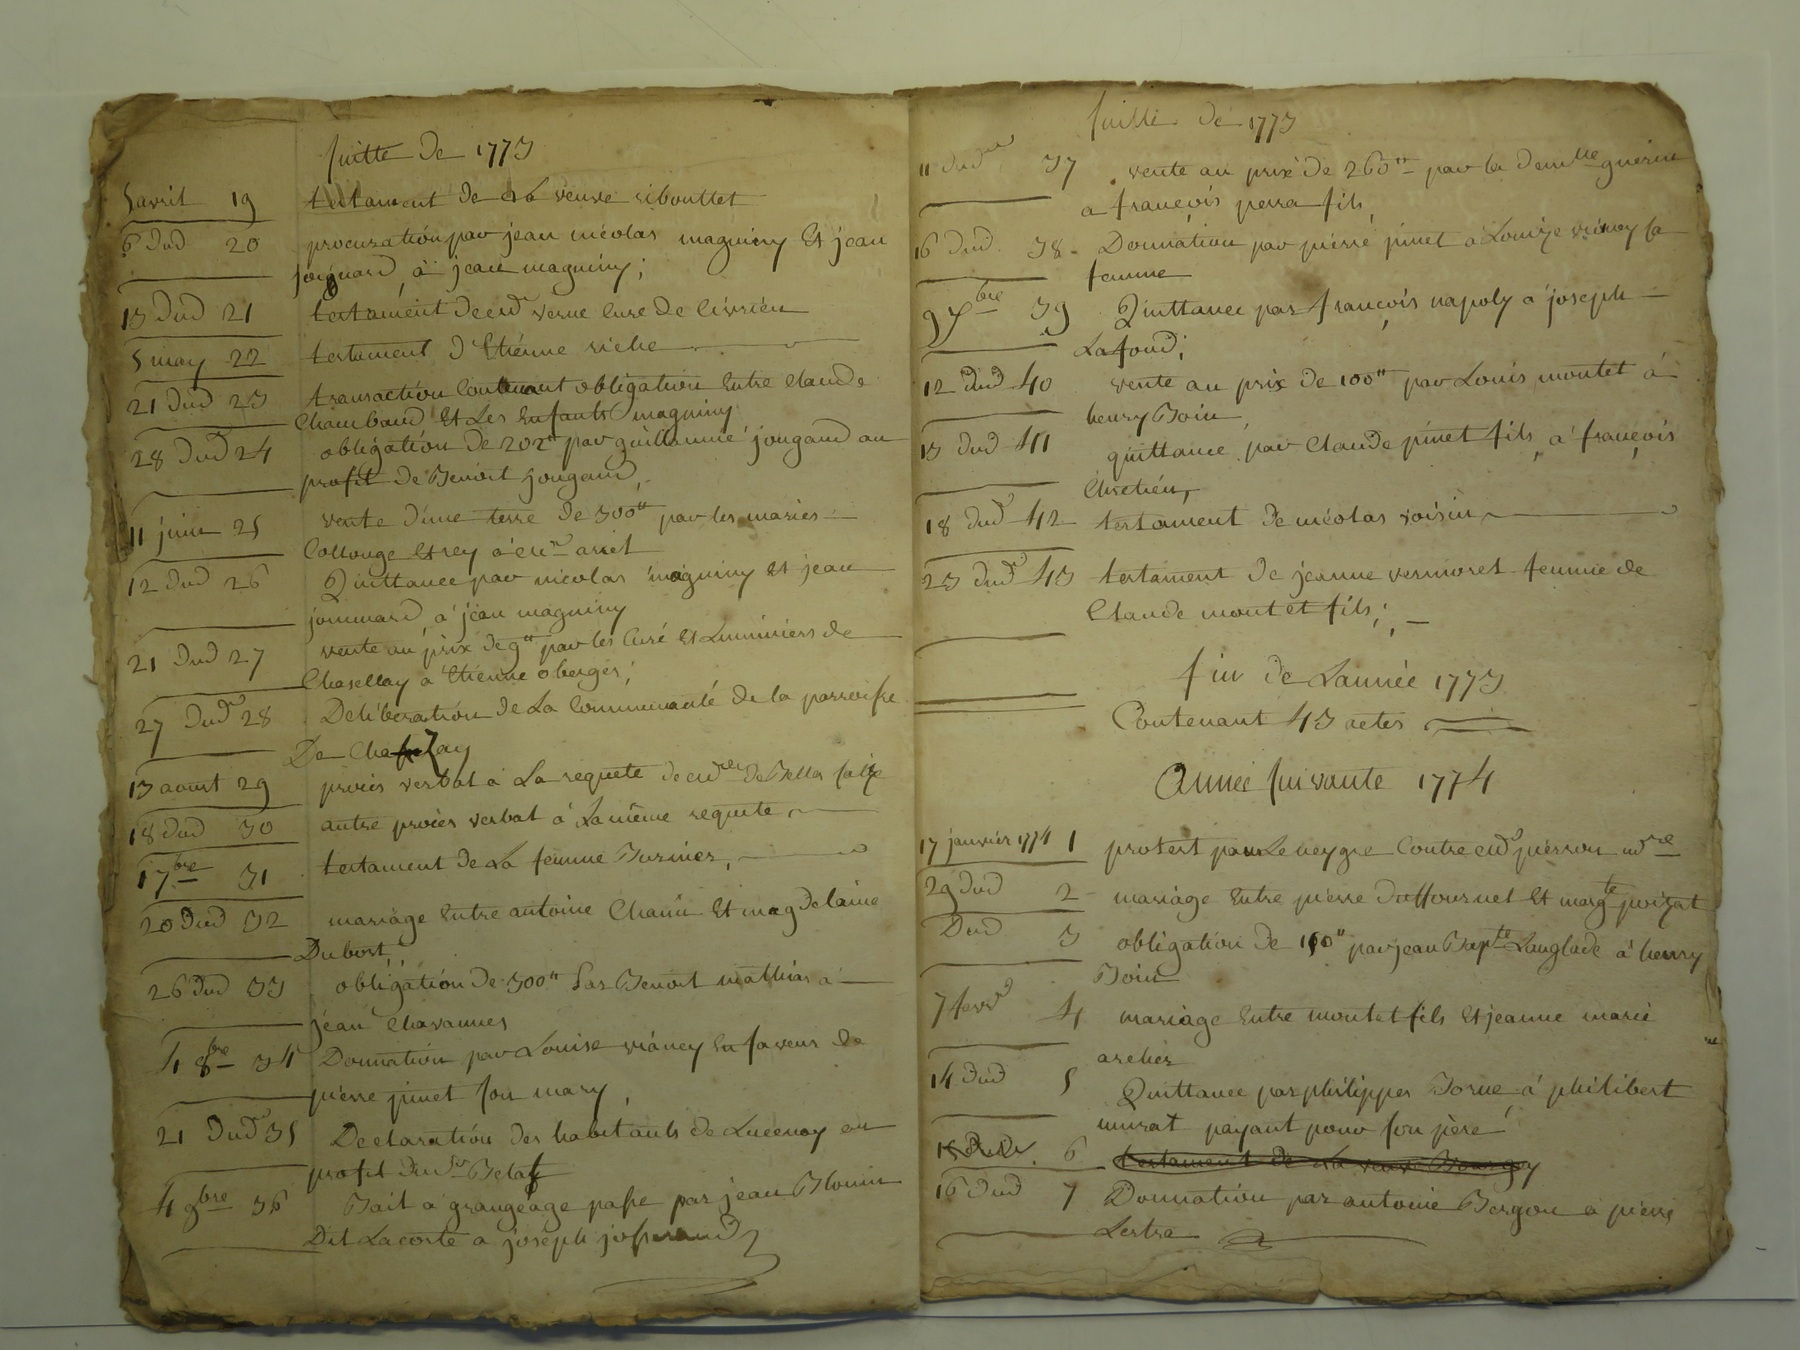 suitte de 1773
5 avril 19 testament de La veuve ribouttet
6 dud 20 procuration par jean nicolas magniny Et jean
joignard, à jean magniny;
13 dud 21 testament de verne Cure de civrieu
5 may 22 testament d'Etienne riche
21 dud 23 transaction Contenant obligation Entre Claude
Chambaud Et Les Enfants magniny
28 dud 24 obligation de 202tt par guillaume jougand au
profit de Benoit jougand,
11 juin 25 vente d'une terre de 300tt par les mariés
Collonge Et rey à
12 dud 26 Quittance par nicolas magniny Et jean
jommard, à jean magniny
21 dud 27 vente au prix de 9tt par les Curé Et Luminiers de
Chasellay a Etienne oberger;
27 dud 28 Deliberation de La Communauté de la parroisse
De
13 aoust 29 procès verbal a La requete de de Bella
18 dud 30 autre procès verbal à La même requete
1 7bre 31 testament de La femme
20 Dud 32 mariage Entre antoine Et magdelaine
Dubost,
26 dud 33 obligation de 300tt Par Benoit mathias à
jean Chavannes
4 8bre 34 Donnation par Louise viáney En faveur de
pierre pinet son mary,
21 Dud 35 Declaration des habitants de Lucenay au
profit du Sr
4 9bre 36 Bail a grangeage passe par jean Blonin
Dit Lacoste a joseph josserand
suitte de 1773
11 dud 37 vente au prix de 260tt par la demlle guerin
a françois perra fils,
16 dud 38 Donnation par pierre pinet à Louize vianey sa
femme
9 Xbre 39 Quittance par françois napoly a joseph
Lafond;
12 dud 40 vente au prix de 100tt par Louis montet à
henry Boin,
13 dud 41 quittance par Claude pinet fils, a françois
Chretien,
18 dud 42 testament de nicolas voisin
23 dud 43 testament de jeanne vermorel femme de
Claude montet fils;
fin de Lannée 1773
Contenant 43 actes
Année suivante 1774
17 janvier 1774 1 protest Contre pierron
29 dud 2 mariage Entre pierre Duffournel Et margte poizat
Dud 3 obligation de par jean Bapte Langlade à henry
Boin
7 fevr 4 mariage Entre montet fils Et jeanne marie
archer
14 dud 5 Quittance par philippes à philibert
murat payant pour son père
6 testament de La veuve
16 dud 7 Donnation par antoine a pierre
Lestra